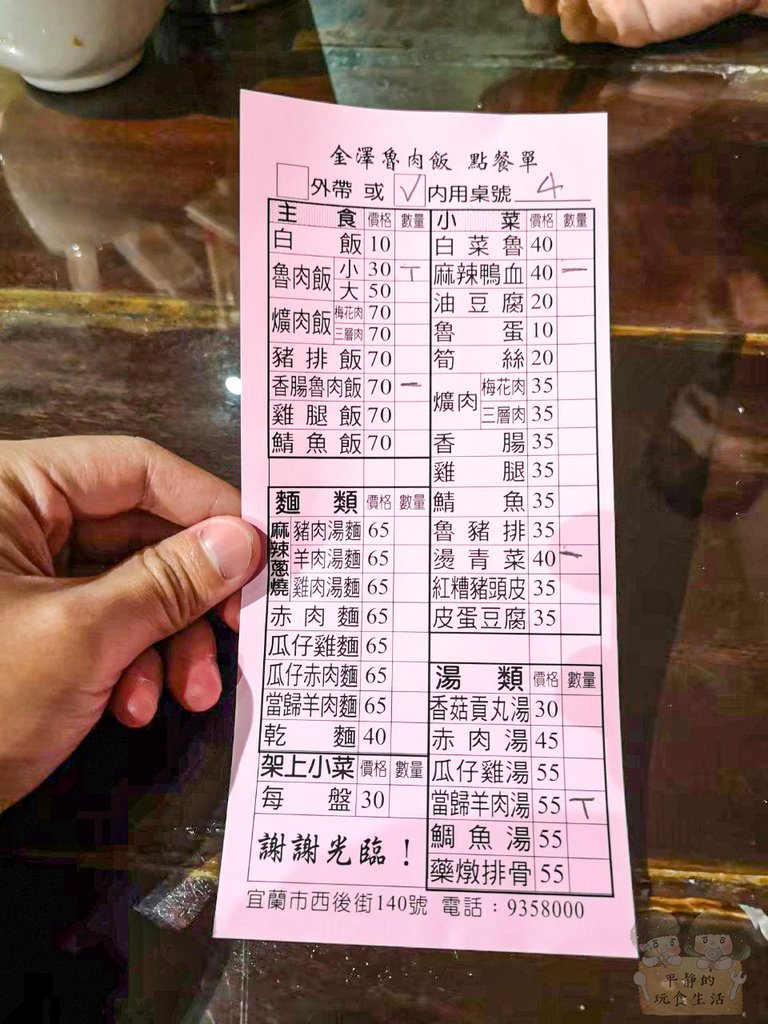 金澤魯肉飯 點餐單
外帶 或 ✓ 內用桌號 4
主食 價格 數量
白飯 10
魯肉飯 小 30 ㄒ
大 50
爌肉飯 梅花肉 70
三層肉 70
豬排飯 70
香腸魯肉飯 70 一
雞腿飯 70
鯖魚飯 70
麵類 價格 數量
麻辣蔥燒 豬肉湯麵 65
羊肉湯麵 65
雞肉湯麵 65
赤肉麵 65
瓜仔雞麵 65
瓜仔赤肉麵 65
當歸羊肉麵 65
乾麵 40
架上小菜 價格 數量
每盤 30
謝謝光臨！
小菜 價格 數量
白菜魯 40
麻辣鴨血 40 一
油豆腐 20
魯蛋 10
筍絲 20
爌肉 梅花肉 35
三層肉 35
香腸 35
雞腿 35
鯖魚 35
魯豬排 35
燙青菜 40 一
紅糟豬頭皮 35
皮蛋豆腐 35
湯類 價格 數量
香菇貢丸湯 30
赤肉湯 45
瓜仔雞湯 55
當歸羊肉湯 55 ㄒ
鯛魚湯 55
藥燉排骨 55
宜蘭市西後街140號 電話：9358000
平靜的
玩食生活